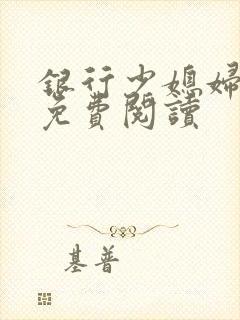 銀行少媳婦
免費閱讀
基普